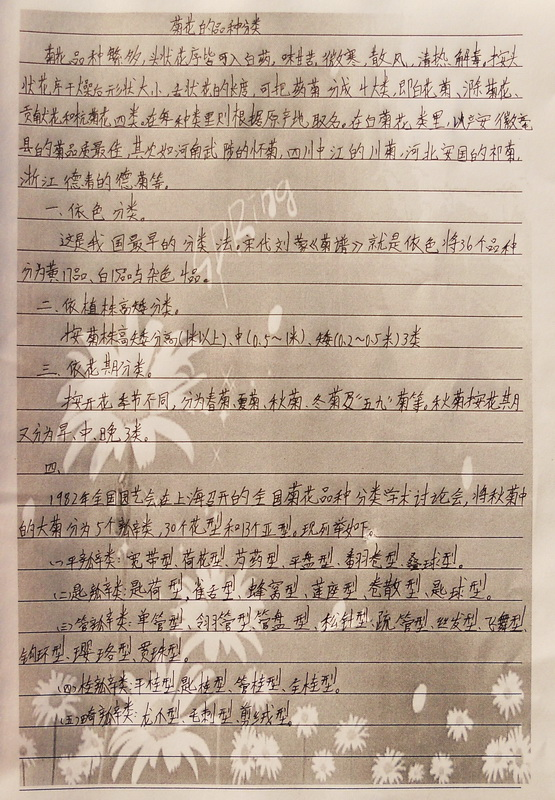 菊花的品种分类
菊花品种繁多,头状花序皆可入白药,味甘苦,微寒,散风,清热解毒。按头
状花序干燥后形状大小,舌状花的长度,可把药菊分成4大类,即白花菊、滁菊花、
贡献花和杭菊花四类。在每种类里则根据原产地取名。在白菊花类里,以产安徽亳
县的菊品质最佳,其次如河南武陟的怀菊,四川中江的川菊,河北安国的祁菊,
浙江德清的德菊等。
一、依色分类。
这是我国最早的分类法。宋代刘蒙《菊谱》就是依色将36个品种
分为黄17品、白15品与杂色4品。
二、依植株高矮分类。
按菊株高矮分高(1米以上)、中(0.5~1米)、矮(0.2~0.5米)3类
三、依花期分类。
按开花季节不同,分为春菊、夏菊、秋菊、冬菊及“五九”菊等。秋菊按花期
又分为早、中、晚3类。
四、
1982年全国园艺会在上海召开的全国菊花品种分类学术讨论会,将秋菊中
的大菊分为5个瓣类,30个花型和13个亚型。现列举如下。
(一)平瓣类:宽带型、荷花型、芍药型、平盘型、翻卷型、叠球型。
(二)匙瓣类:匙荷型、雀舌型、蜂窝型、莲座型、卷散型、匙球型。
(三)管瓣类:单管型、翎管型、管盘型、松针型、疏管型、丝发型、飞舞型、
钩环型、璎珞型、贯珠型。
(四)桂瓣类:平桂型、匙桂型、管桂型、全桂型。
(五)畸瓣类:龙爪型、毛刺型、剪绒型。
SPRing